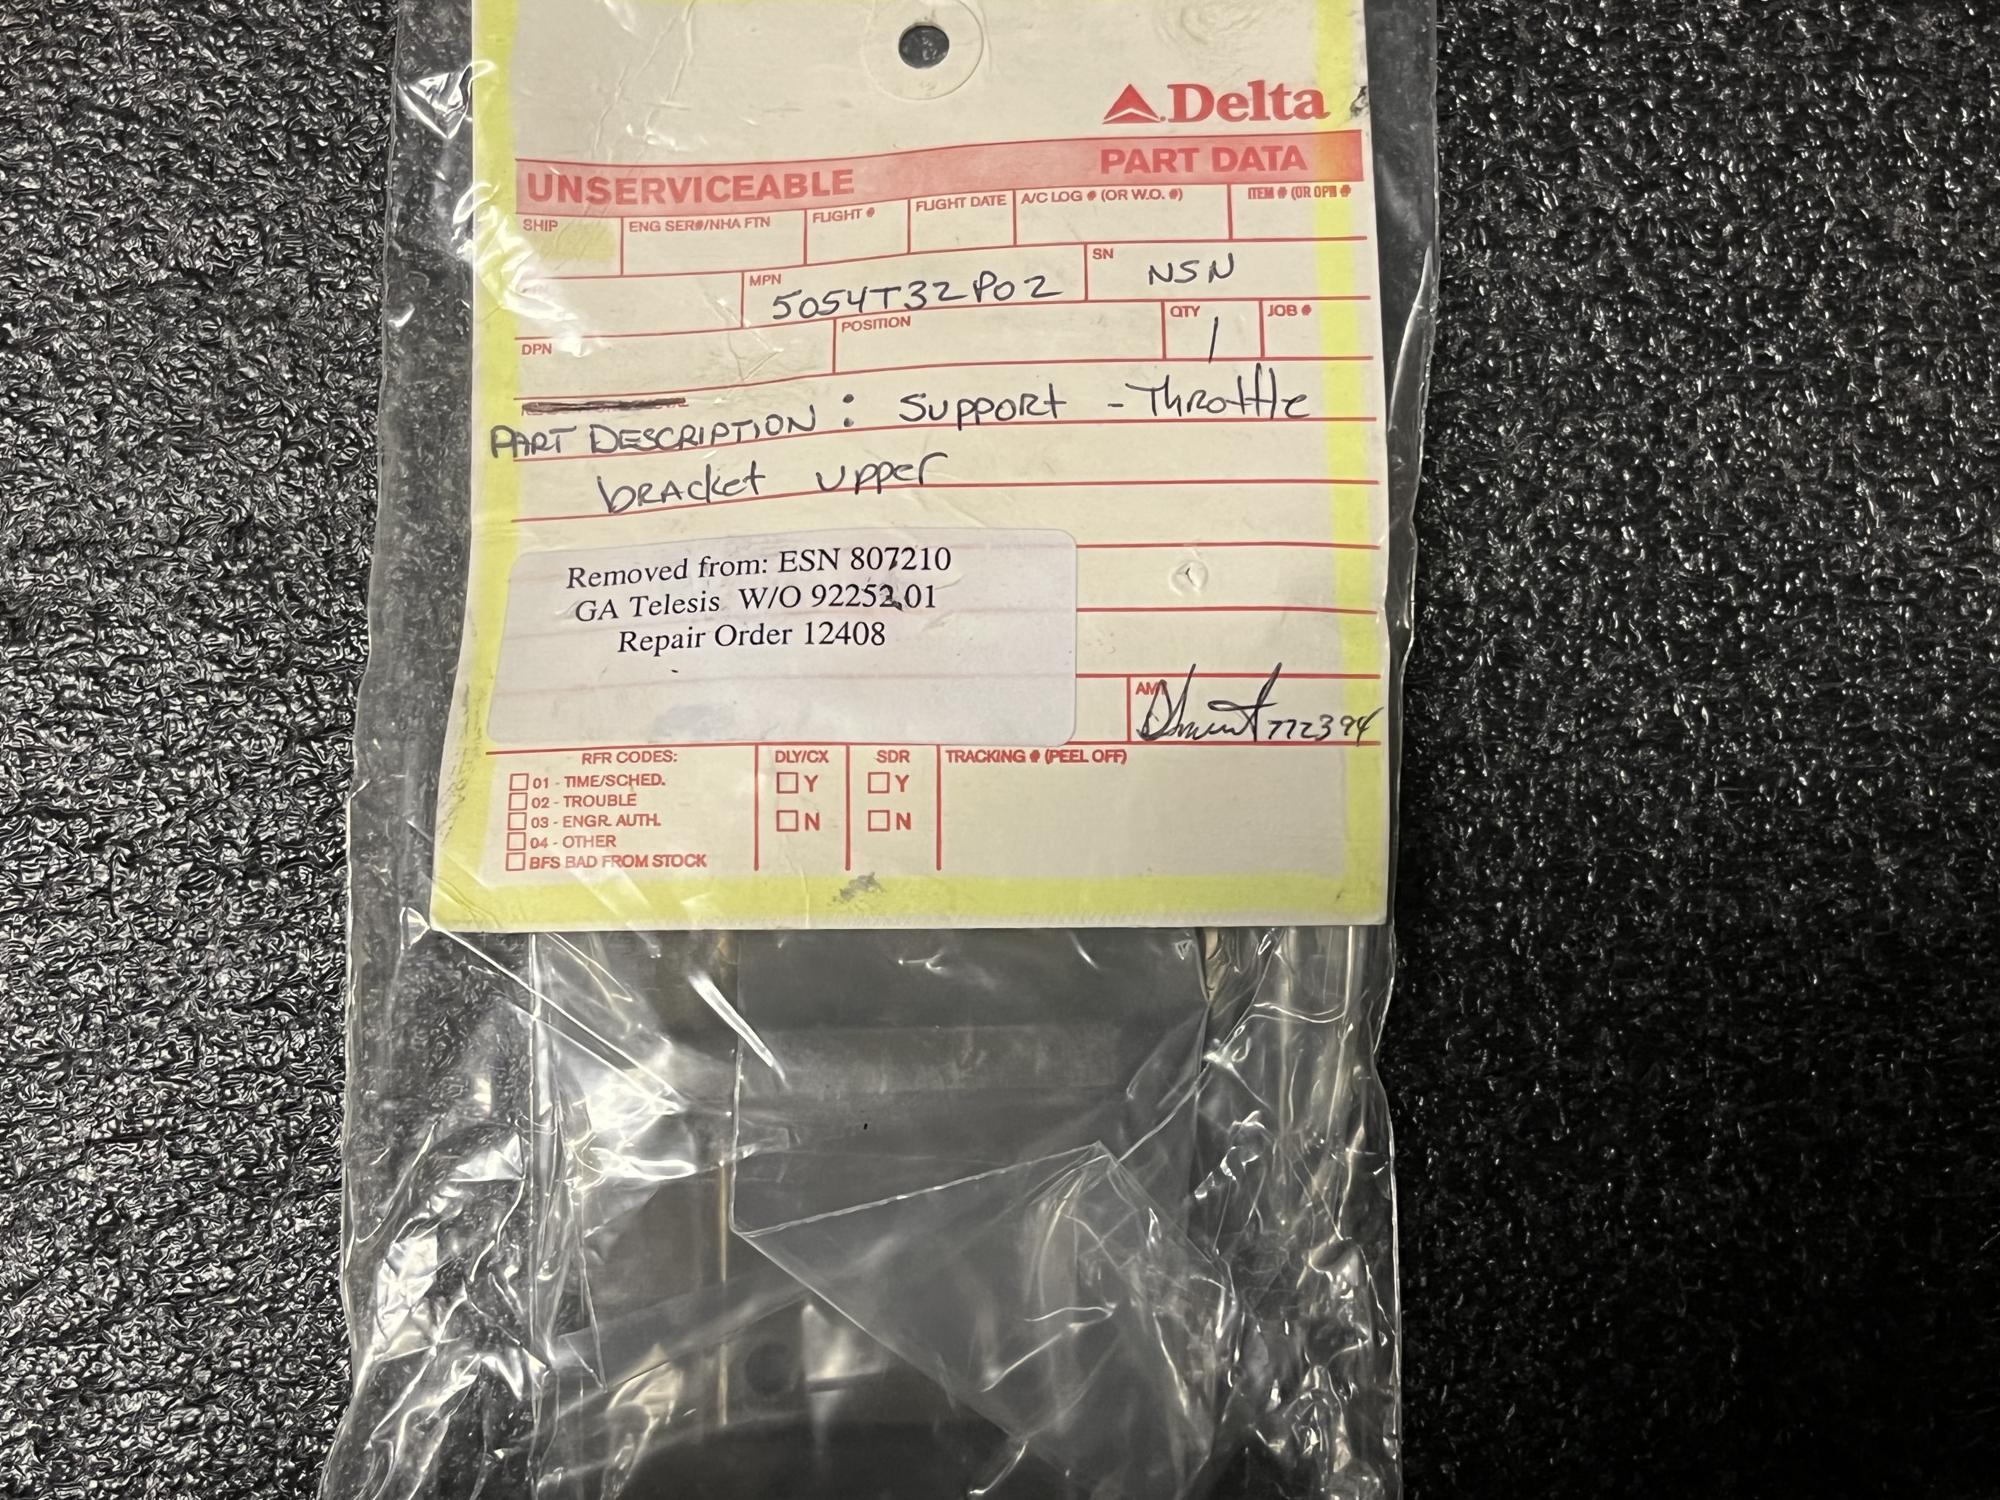 Delta
UNSERVICEABLE PART DATA
SHIP ENG SER#/NHA FTN FLIGHT # FLIGHT DATE A/C LOG # (OR W.O. #) ITEM # (OR OPR #
MPN 5054T32P02 SN NSN
DPN POSITION QTY 1 JOB #
PART DESCRIPTION: Support - Throttle
bracket upper
Removed from: ESN 807210
GA Telesis W/O 92252.01
Repair Order 12408
AMT 772394
RFR CODES: DLY/CX SDR TRACKING # (PEEL OFF)
01 - TIME/SCHED. Y Y
02 - TROUBLE
03 - ENGR. AUTH. N N
04 - OTHER
BFS BAD FROM STOCK